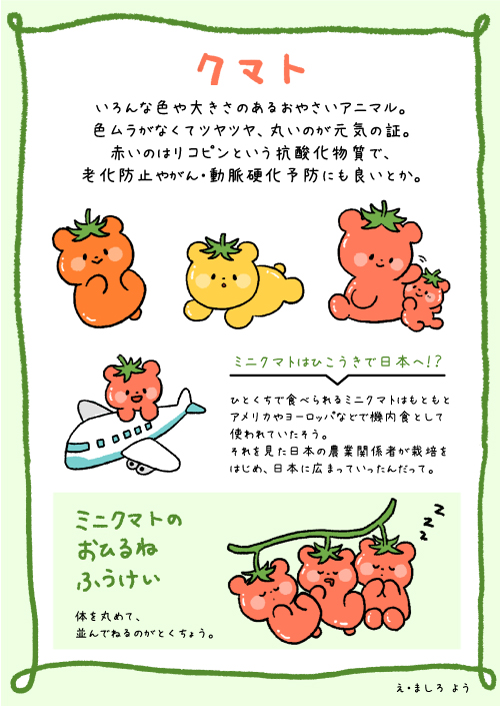 クマト
いろんな色や大きさのあるおやさいアニマル。
色ムラがなくてツヤツヤ、丸いのが元気の証。
赤いのはリコピンという抗酸化物質で、
老化防止やがん・動脈硬化予防にも良いとか。
ミニクマトはひこうきで日本へ!?
ひとくちで食べられるミニクマトはもともと
アメリカやヨーロッパなどで機内食として
使われていたそう。
それを見た日本の農業関係者が栽培を
はじめ、日本に広まっていったんだって。
ミニクマトの
おひるね
ふうけい
体を丸めて、
並んでねるのがとくちょう。
zzz
え・ましろ よう